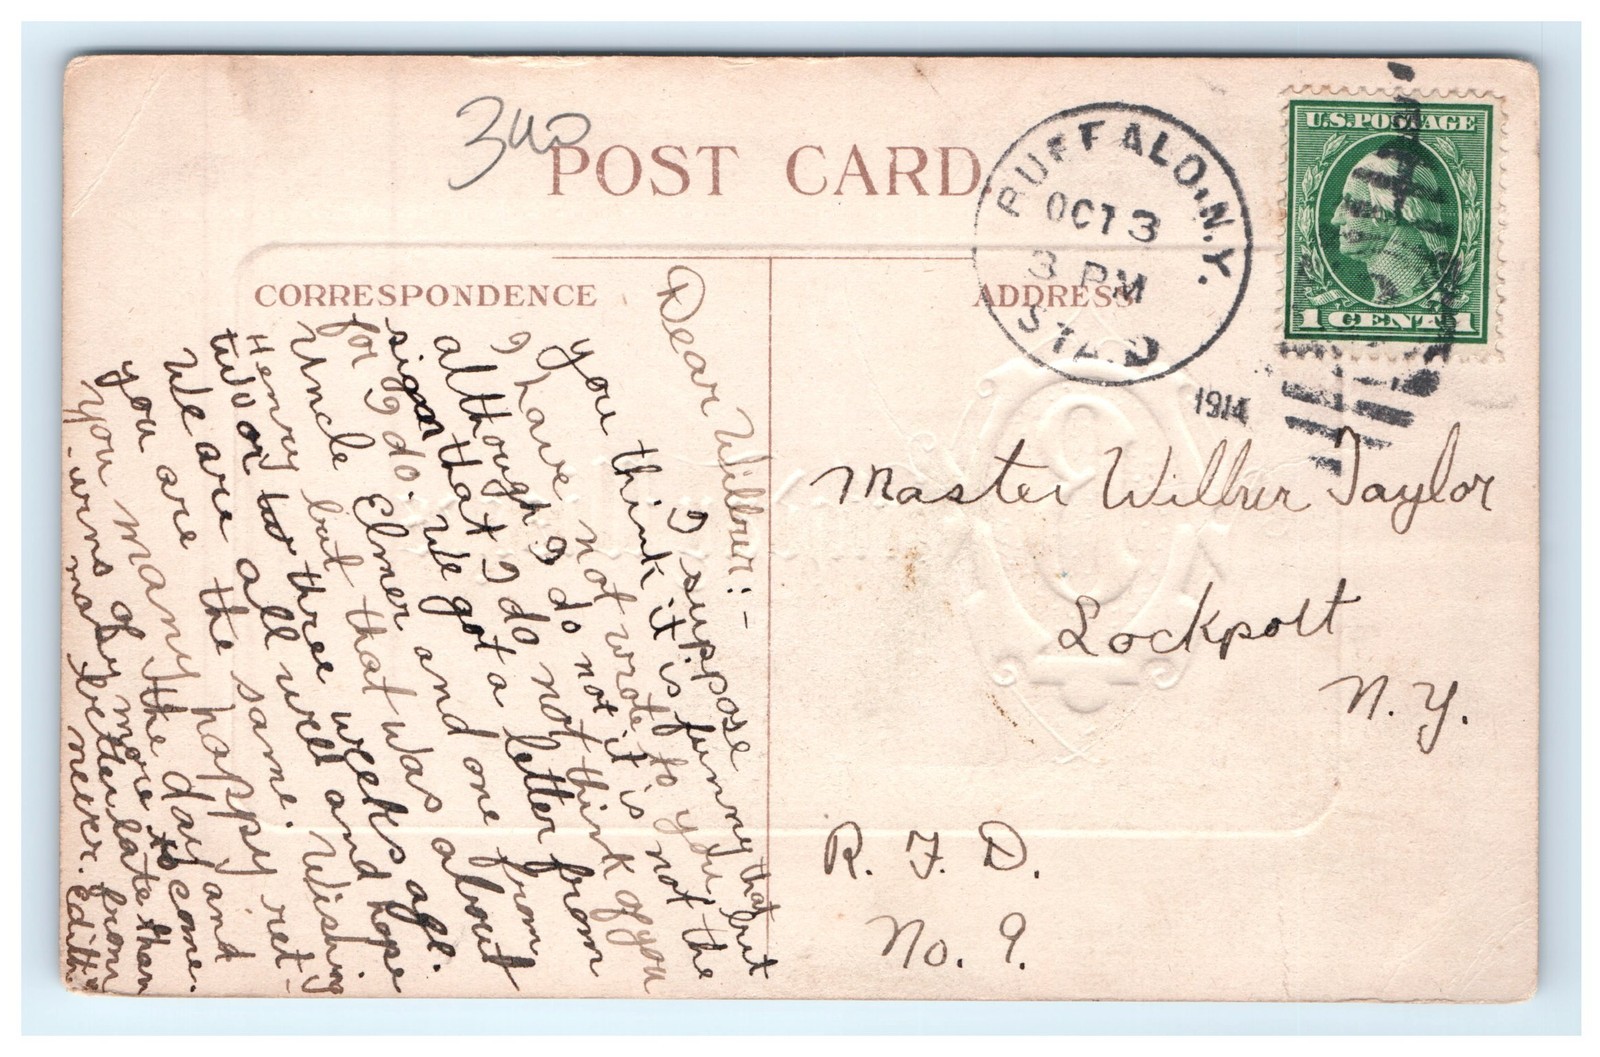 340
POST CARD
BUFFALO, N.Y.
OCT 3
3 PM
STA. D
1914
U.S. POSTAGE
1 CENT 1
CORRESPONDENCE
ADDRESS
Dear Wilbur:-
I suppose
you think it is funny that
I have not wrote to you, but
although I do not it is not the
sign that I do not think of you
for I do. We got a letter from
Uncle Elmer and one from
Henry but that was about
two or three weeks ago.
We are all well and hope
you are the same. Wishing
you many happy ret-
urns of the day and
many more to come.
better late than
never. from
Edith
Master Wilbur Taylor
Lockport
N. Y.
R. F. D.
No. 9.